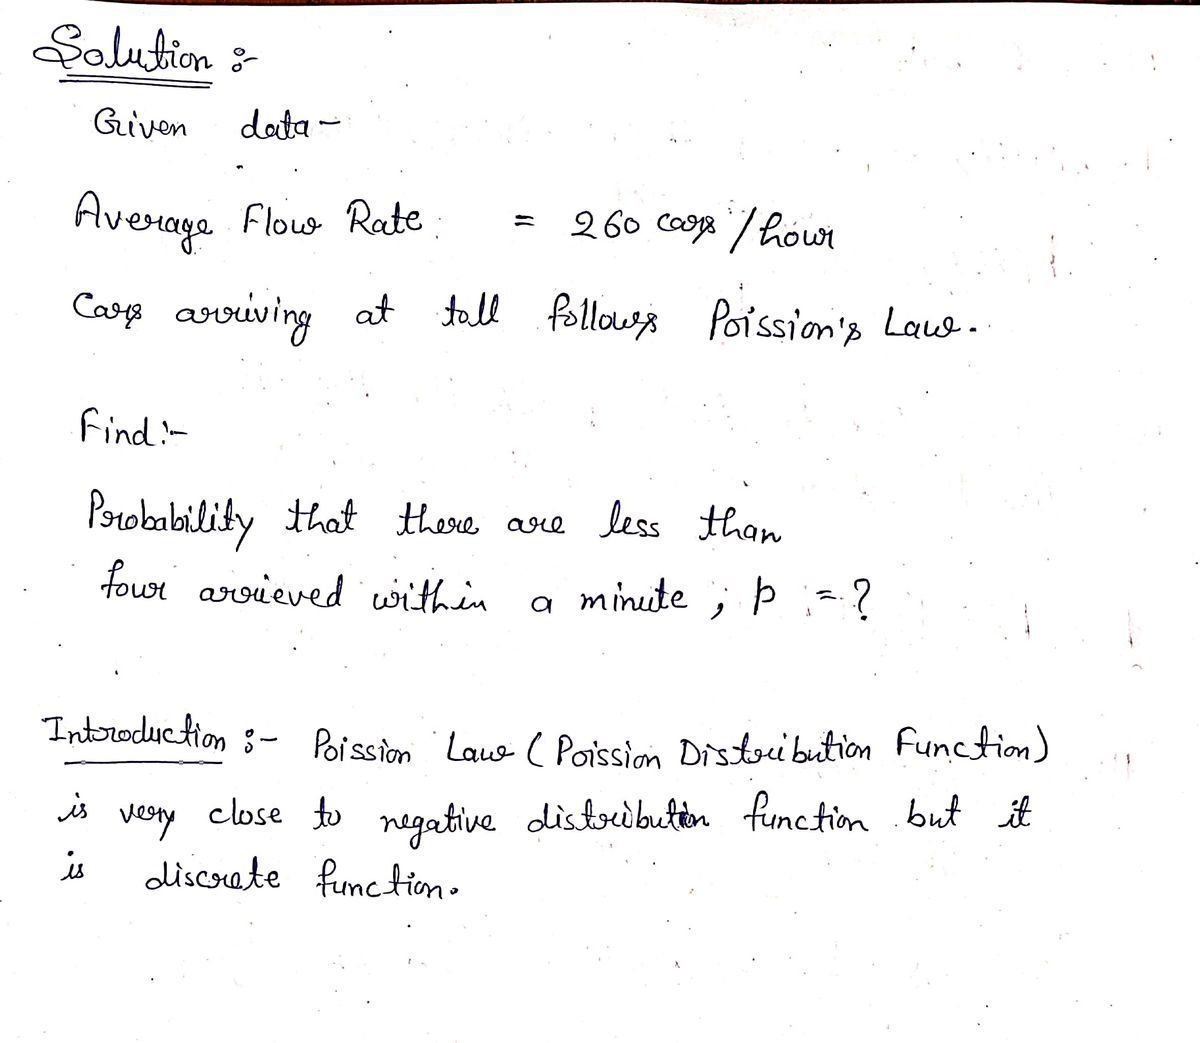 Solution :-
Given data -
Average Flow Rate = 260 cars / hour
Cars arriving at toll follows Poission's Law.
Find :-
Probability that there are less than
four arrieved within a minute ; p = ?
Introduction :- Poission Law ( Poission Distribution Function )
is very close to negative distribution function but it
is discrete function.